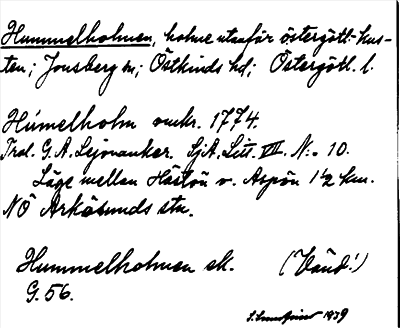 Hummelholmen, holme utanför östergötl. kus-
ten; Jonsberg sn; Östkinds hd; Östergötl. l.
Húmelholm omkr. 1774.
G. A. Lejonanker. SjA, Litt. VII. N:o 10.
Läge mellan Hästön o. Aspön 1 1/2 km.
NÖ Arkösunds stn.
Hummelholmen ek. (Vänd!)
G. 56.
1939